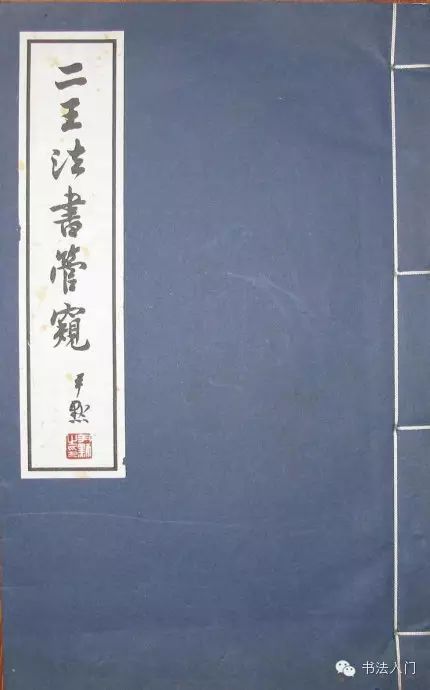 二王法書管窺
尹默
书法入门